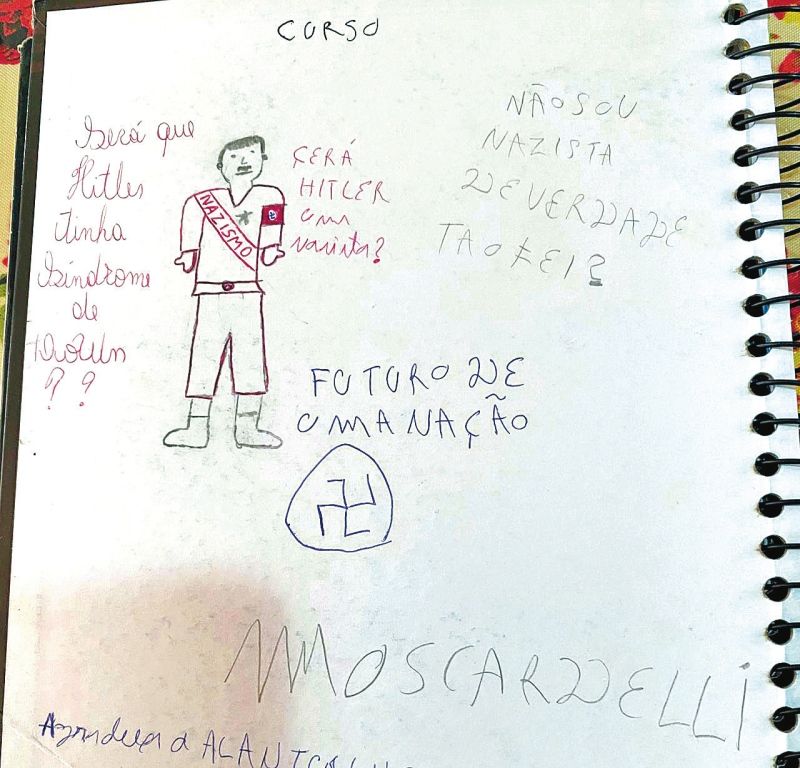 CURSO
Será que
Hitler
tinha
Síndrome
de
Down
? ?
NAZISMO
ÇERÁ
HITLER
um
nazista?
NÃO SOU
NAZISTA
DE VERDADE
TAOKEI?
FUTURO DE
UMA NAÇÃO
MOSCARDELLI
a ALAN